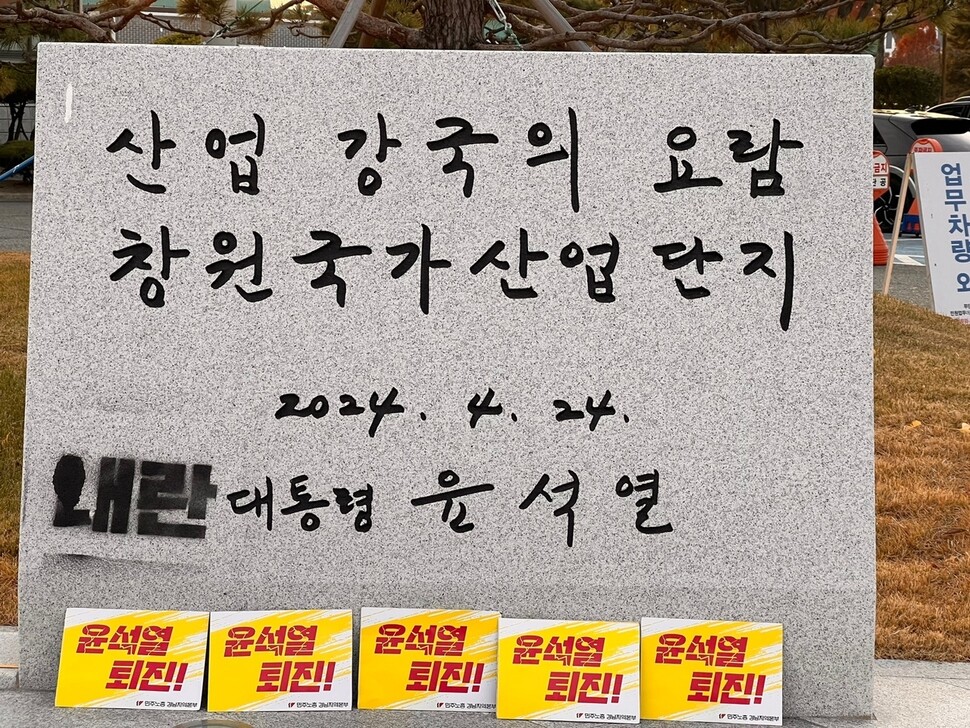 산업 강국의 요람
창원국가산업단지
2024. 4. 24.
내란 대통령 윤석열
윤석열
퇴진!
민주노총 경남지역본부
윤석열
퇴진!
민주노총 경남지역본부
윤석열
퇴진!
민주노총 경남지역본부
윤석열
퇴진!
민주노총 경남지역본부
윤석열
퇴진!
민주노총 경남지역본부
금지
업무차량 외